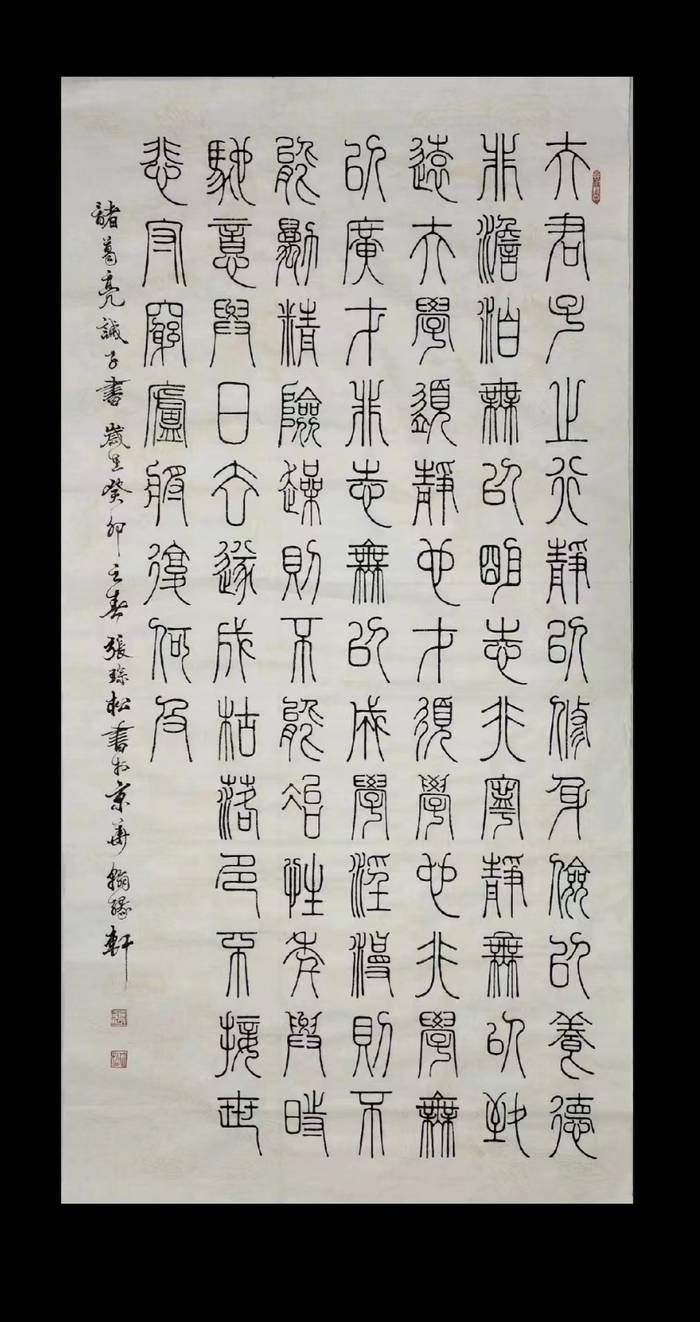 夫君子之行靜以修身儉以養德
非澹泊無以明志非寧靜無以致
遠夫學須靜也才須學也非學無
以廣才非志無以成學淫漫則不
能勵精險躁則不能冶性年與時
馳意與日去遂成枯落多不接世
悲守窮廬將復何及
諸葛亮誡子書歲在癸卯之春張松書於京華翰緣軒